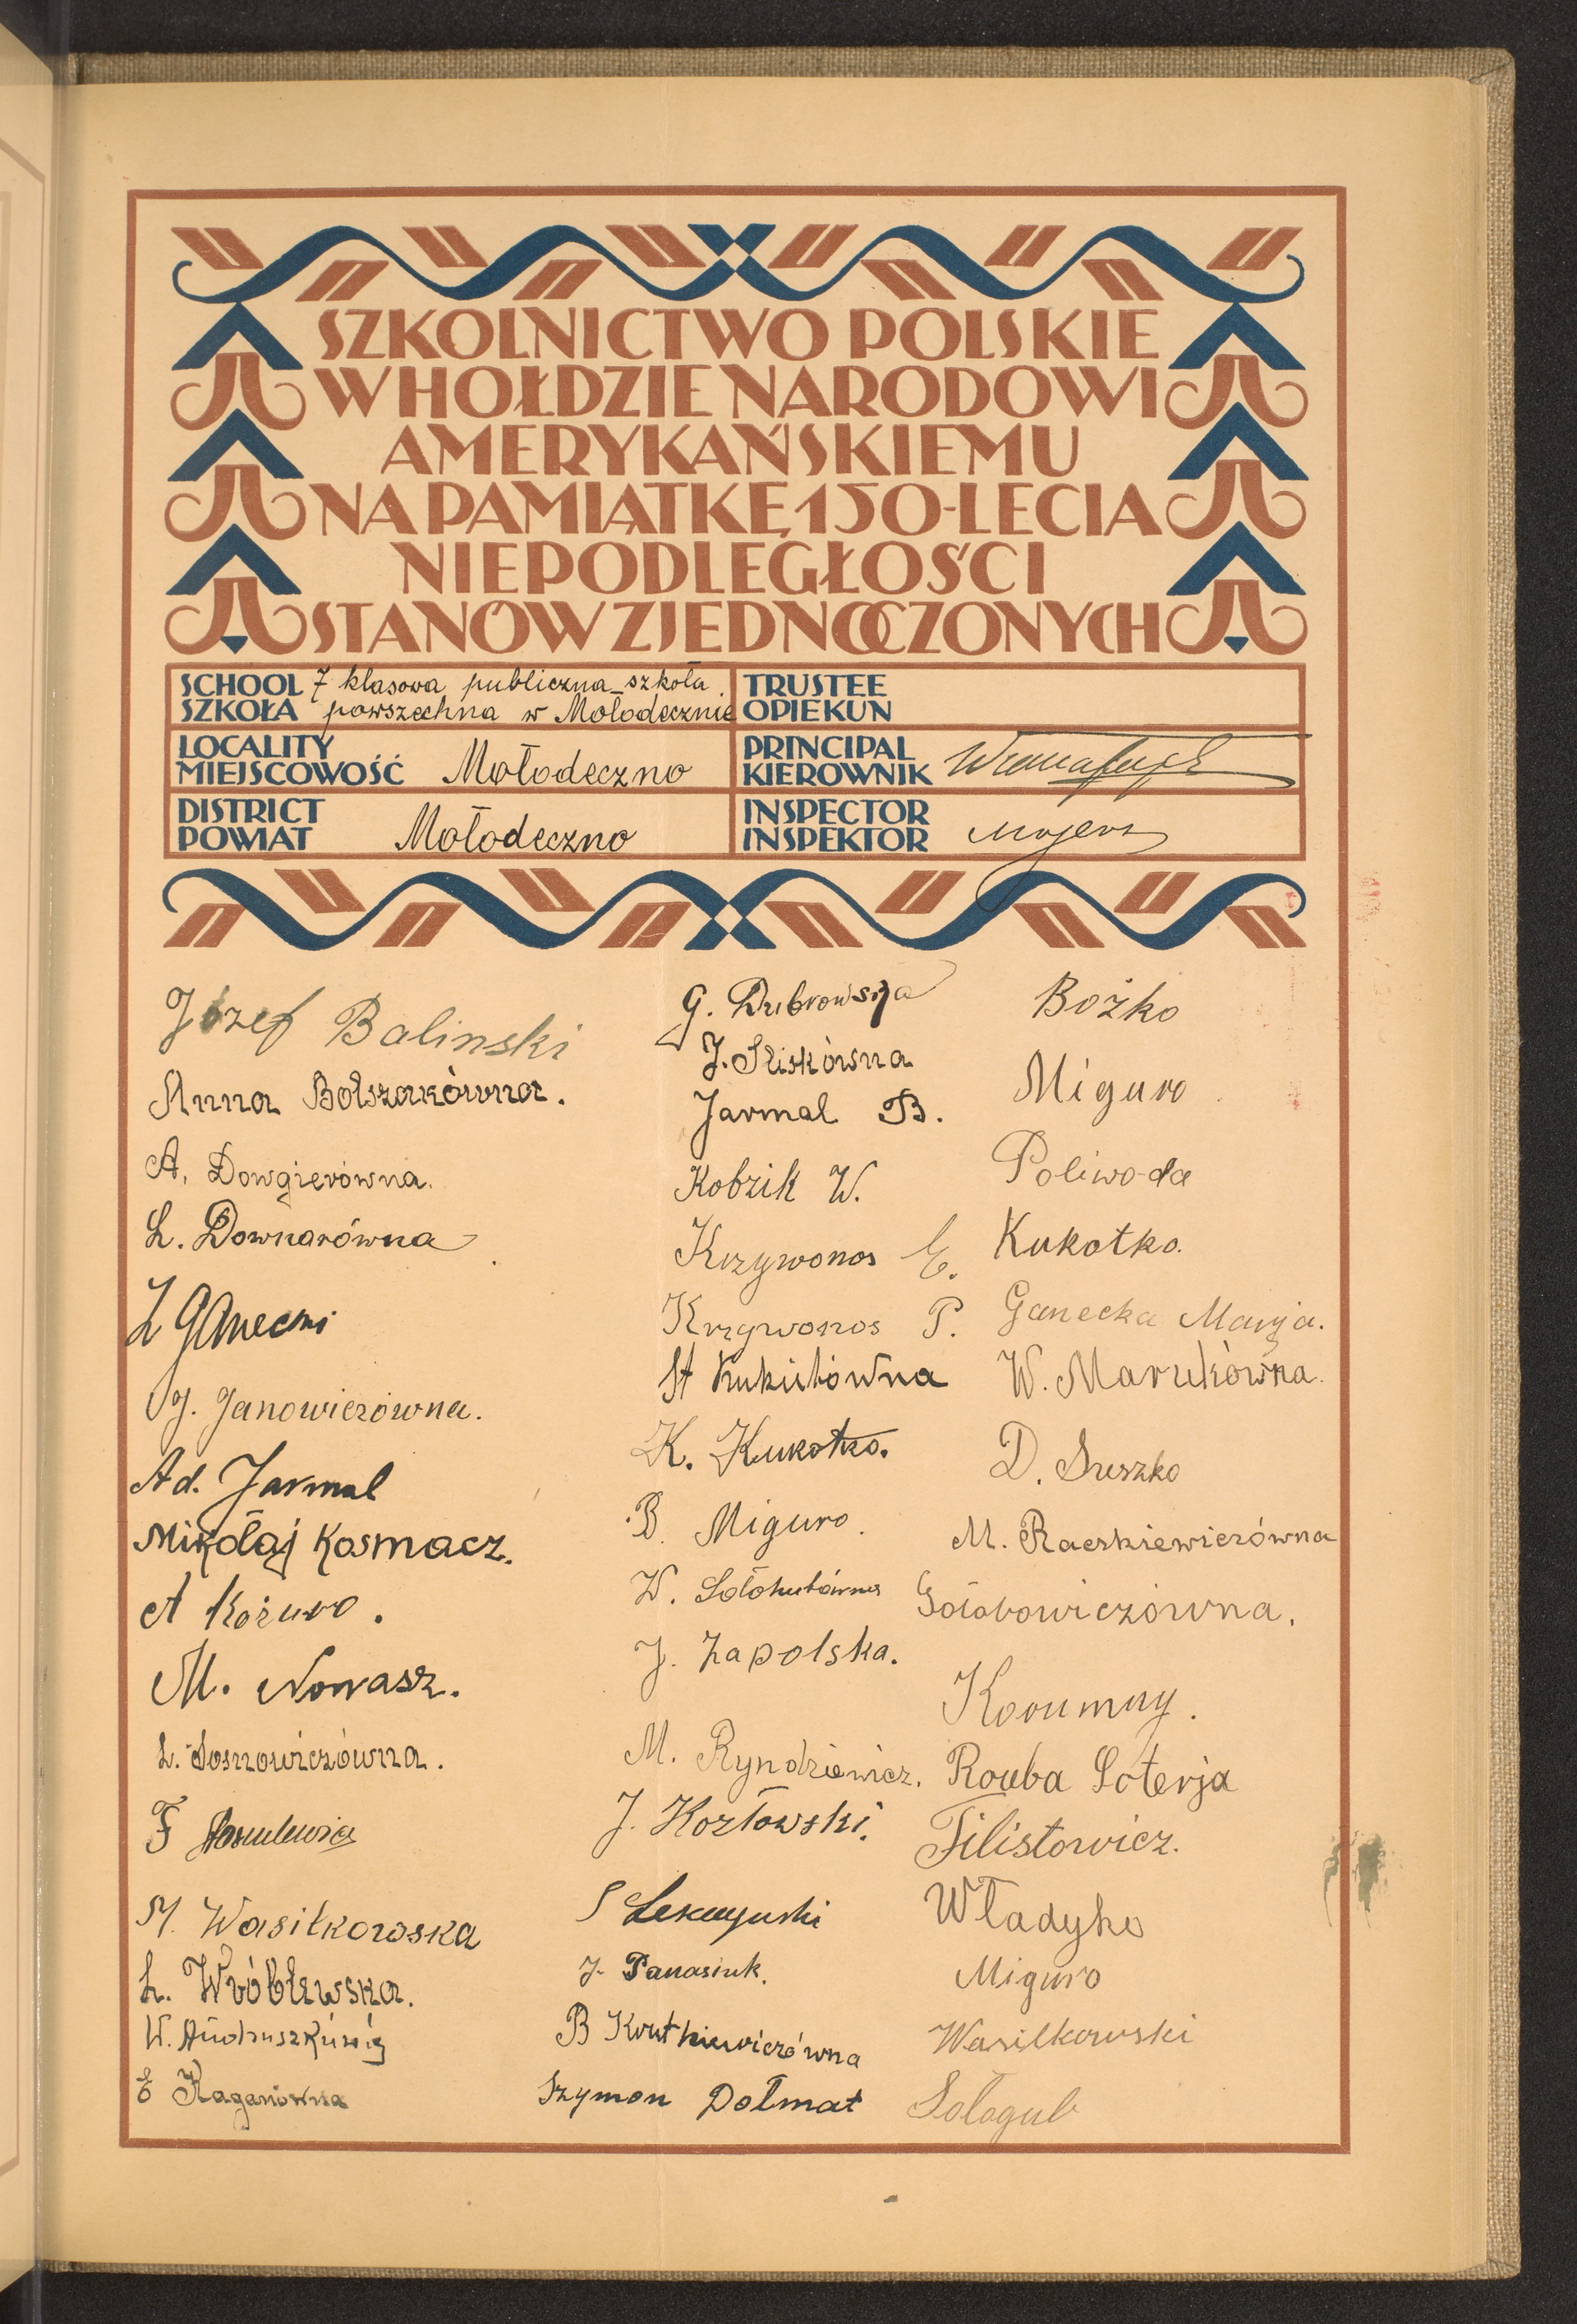 SZKOLNICTWO POLSKIE
W HOŁDZIE NARODOWI
AMERYKAŃSKIEMU
NA PAMIĄTKĘ 150-LECIA
NIEPODLEGŁOŚCI
STANÓW ZJEDNOCZONYCH
SCHOOL 7 klasowa publiczna szkoła
SZKOŁA powszechna w Mołodecznie
TRUSTEE
OPIEKUN
LOCALITY
MIEJSCOWOŚĆ Mołodeczno
PRINCIPAL
KIEROWNIK
DISTRICT
POWIAT Mołodeczno
INSPECTOR
INSPEKTOR
Józef Balinski
Anna Bolszakówna.
A. Dowgierówna.
L. Downarówna
L Ganecki
J. Janowiczówna.
Ad. Jarmal
Mikołaj Kosmacz.
A Kożuro.
M. Nowasz.
L. Sosnowiczówna.
F
M. Wasiłkowska
L. Wróblewska.
W.
E Kaganówna
G. Dubrowska
J.
Jarmal B.
Kobzik W.
Krzywonos E.
Krzywonos P.
St
K. Kukotko.
B. Miguro.
W. Sołohubówna
J. Zapolska.
M. Ryndziewicz.
J. Kozłowski.
S
J. Panasiuk.
B Krutkiewiczówna
Szymon Dołmat
Bożko
Miguro
Poliwoda
Kukotko.
Ganecka Marja.
W. Marukówna.
D. Suszko
M. Raczkiewiczówna
Gołobowiczówna.
Korumny.
Rouba Soterja
Filistowicz.
Władyko
Miguro
Wasilkowski
Sologub